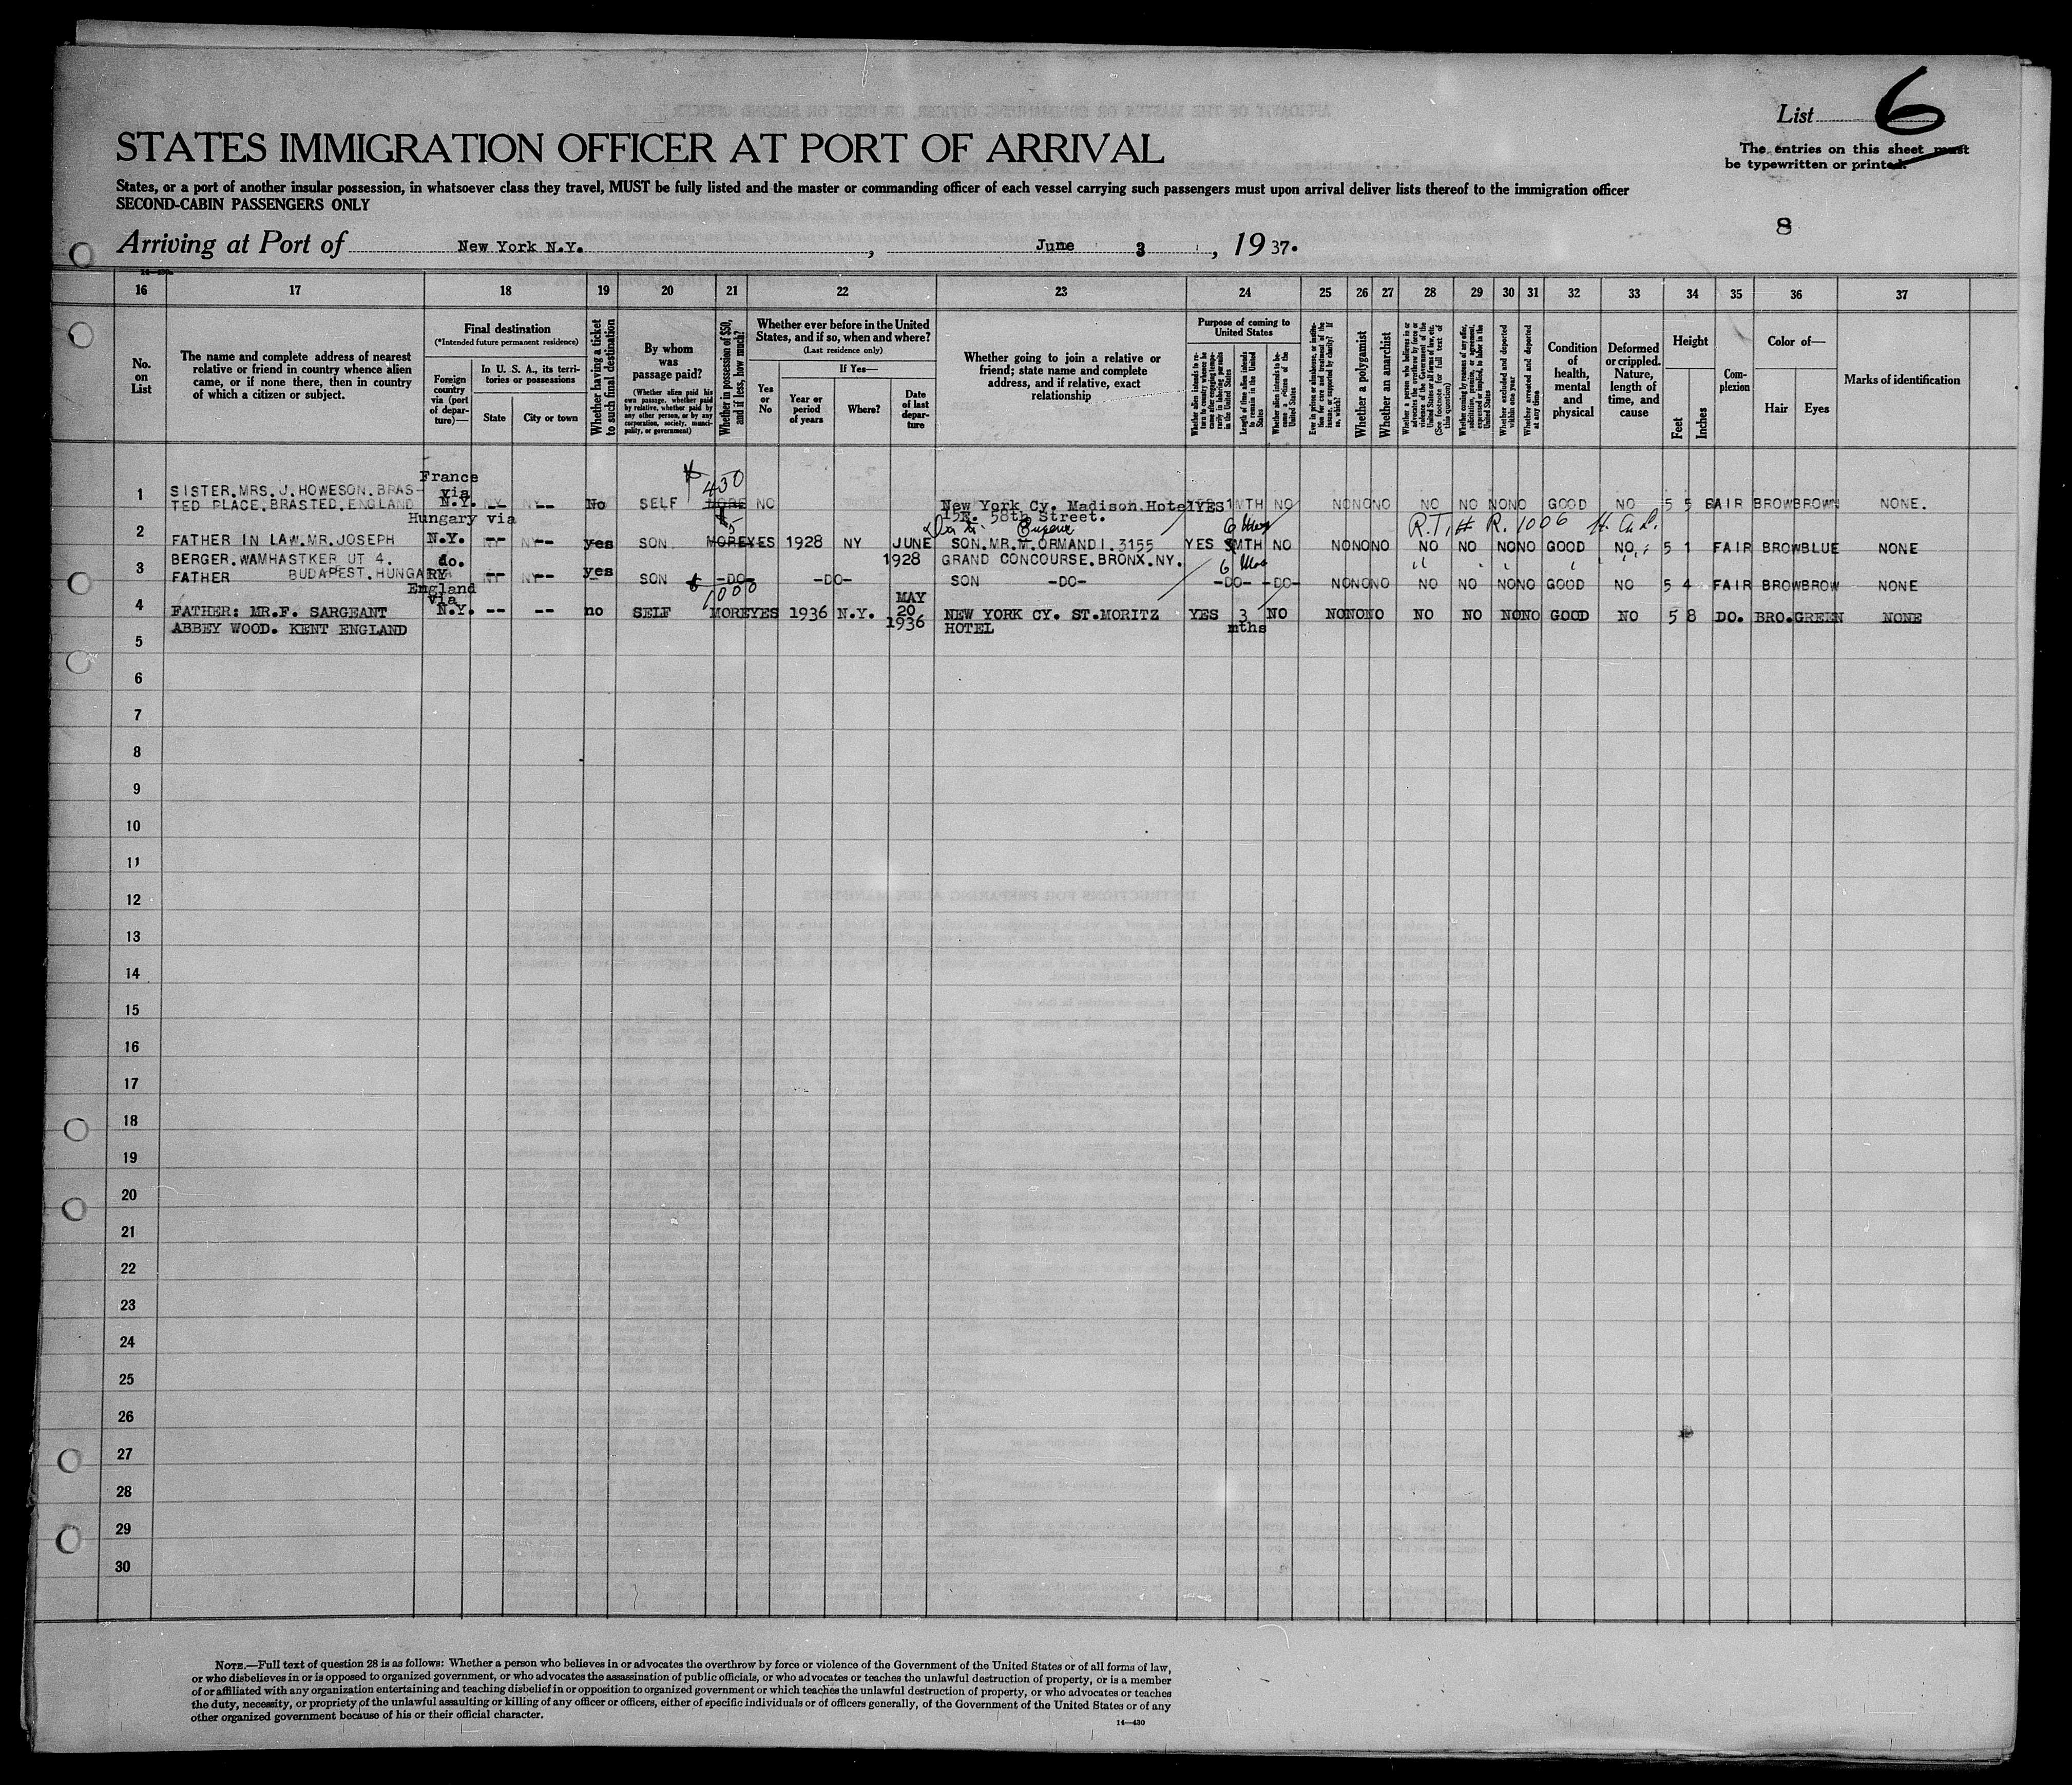 List 6
The entries on this sheet must
be typewritten or printed.
STATES IMMIGRATION OFFICER AT PORT OF ARRIVAL
States, or a port of another insular possession, in whatsoever class they travel, MUST be fully listed and the master or commanding officer of each vessel carrying such passengers must upon arrival deliver lists thereof to the immigration officer
SECOND-CABIN PASSENGERS ONLY
8
Arriving at Port of New York N.Y., June 3, 1937.
16 17 18 19 20 21 22 23 24 25 26 27 28 29 30 31 32 33 34 35 36 37
No. on List
The name and complete address of nearest relative or friend in country whence alien came, or if none there, then in country of which a citizen or subject.
Final destination
(*Intended future permanent residence)
Foreign country via (port of departure)—
In U. S. A., its territories or possessions
State
City or town
Whether having a ticket to such final destination
By whom was passage paid?
(Whether alien paid his own passage, whether paid by relative, whether paid by any other person, or by any corporation, society, municipality, or government)
Whether in possession of $50, and if less, how much?
Whether ever before in the United States, and if so, when and where?
(Last residence only)
Yes or No
If Yes—
Year or period of years
Where?
Date of last departure
Whether going to join a relative or friend; state name and complete address, and if relative, exact relationship
Purpose of coming to United States
Length of time alien intends to remain in the United States
Whether alien intends to become a citizen of the United States
Whether a polygamist
Whether an anarchist
Whether excluded and deported within one year
Whether arrested and deported at any time
Condition of health, mental and physical
Deformed or crippled. Nature, length of time, and cause
Height
Feet
Inches
Complexion
Color of—
Hair
Eyes
Marks of identification
France
$430
1 SISTER.MRS.J.HOWESON.BRAS- via
TED PLACE.BRASTED.ENGLAND N.Y. -- -- No SELF MORE NO New York Cy. Madison Hotel YES 1MTH NO NO NO NO NO NO NO NO GOOD NO 5 5 FAIR BROW BROWN NONE.
15E. 58th Street.
Hungary via
$5 Eugene 6 Mos R.T.# R.1006
2 FATHER IN LAW.MR.JOSEPH N.Y. -- -- yes SON MORE YES 1928 NY JUNE SON.MR.M.ORMANDI.3155 YES 3MTH NO NO NO NO NO NO NO NO GOOD NO 5 1 FAIR BROW BLUE NONE
BERGER.WAMHASTKER UT 4. do. 1928 GRAND CONCOURSE.BRONX.NY.
6 Mos
3 FATHER BUDAPEST.HUNGARY -- -- yes SON -DO- -DO- SON -DO- -DO- -DO- NO NO NO NO NO NO NO GOOD NO 5 4 FAIR BROW BROW NONE
England $1000
via MAY
4 FATHER: MR.F. SARGEANT N.Y. -- -- no SELF MORE YES 1936 N.Y. 20 NEW YORK CY. ST.MORITZ YES 3 NO NO NO NO NO NO NO NO GOOD NO 5 8 DO. BRO. GREEN NONE
ABBEY WOOD. KENT ENGLAND 1936 HOTEL mths
5
6
7
8
9
10
11
12
13
14
15
16
17
18
19
20
21
22
23
24
25
26
27
28
29
30
NOTE.—Full text of question 28 is as follows: Whether a person who believes in or advocates the overthrow by force or violence of the Government of the United States or of all forms of law,
or who disbelieves in or is opposed to organized government, or who advocates the assassination of public officials, or who advocates or teaches the unlawful destruction of property, or is a member
of or affiliated with any organization entertaining and teaching disbelief in or opposition to organized government or which teaches the unlawful destruction of property, or who advocates or teaches
the duty, necessity, or propriety of the unlawful assaulting or killing of any officer or officers, either of specific individuals or of officers generally, of the Government of the United States or of any
other organized government because of his or their official character.
14—430